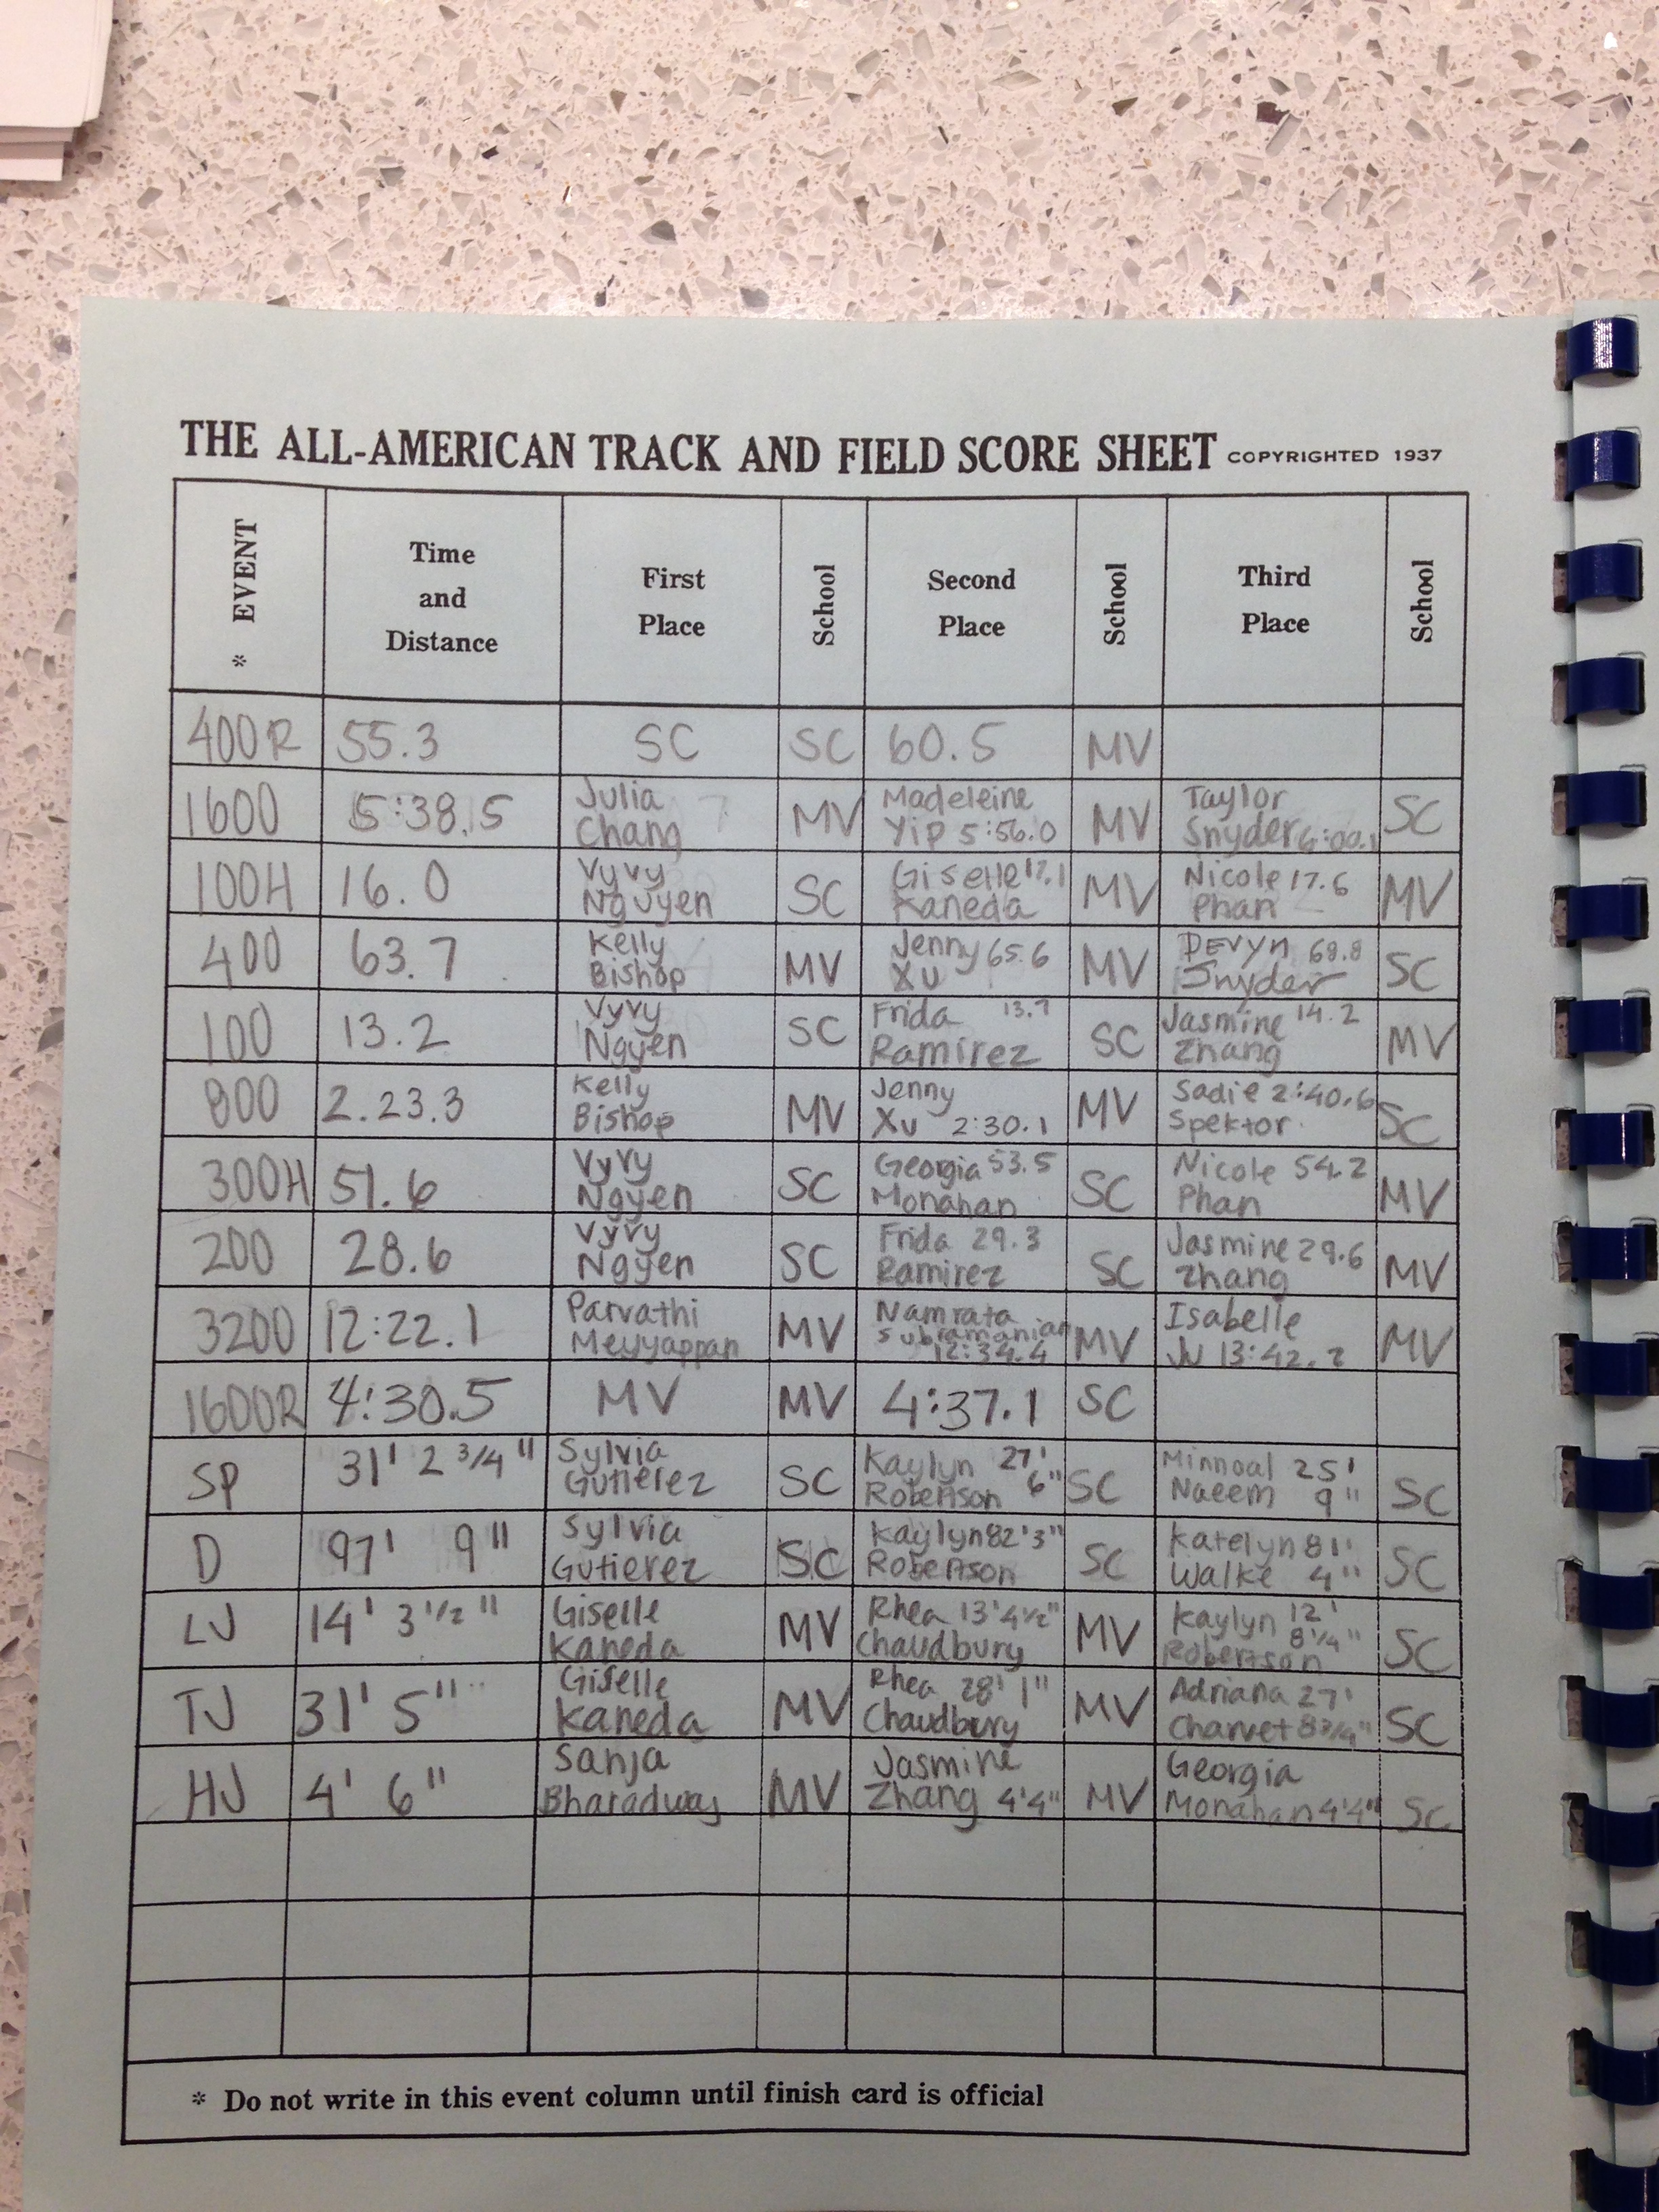 THE ALL-AMERICAN TRACK AND FIELD SCORE SHEET COPYRIGHTED 1937
* EVENT
Time and Distance
First Place
School
Second Place
School
Third Place
School
400R 55.3 SC SC 60.5 MV
1600 5:38.5 Julia Chang MV Madeleine Yip 5:56.0 MV Taylor Snyder 6:00.1 SC
100H 16.0 Vyvy Nguyen SC Giselle 17.1 Kaneda MV Nicole 17.6 Phan MV
400 63.7 Kelly Bishop MV Jenny 65.6 Xu MV Devyn 68.8 Snyder SC
100 13.2 Vyvy Ngyen SC Frida 13.7 Ramirez SC Jasmine 14.2 Zhang MV
800 2.23.3 Kelly Bishop MV Jenny Xu 2:30.1 MV Sadie 2:40.6 Spektor SC
300H 51.6 Vyvy Ngyen SC Georgia 53.5 Monahan SC Nicole 54.2 Phan MV
200 28.6 Vyvy Ngyen SC Frida 29.3 Ramirez SC Jasmine 29.6 Zhang MV
3200 12:22.1 Parvathi Meyyappan MV Namrata Subramanian 12:34.4 MV Isabelle Ju 13:42.2 MV
1600R 4:30.5 MV MV 4:37.1 SC
SP 31' 2 3/4" Sylvia Gutierez SC Kaylyn 27' 6" Robertson SC Minnoal 25' Naeem 9" SC
D 97' 9" Sylvia Gutierez SC Kaylyn 82'3" Robertson SC Katelyn 81' Walke 4" SC
LJ 14' 3 1/2" Giselle Kaneda MV Rhea 13'4 1/2" Chaudbury MV Kaylyn 12' 8 1/4" Robertson SC
TJ 31' 5" Giselle Kaneda MV Rhea 28' 1" Chaudbury MV Adriana 27' Charvet 8 3/4" SC
HJ 4' 6" Sanja Bharadwaj MV Jasmine Zhang 4'4" MV Georgia Monahan 4'4" SC
* Do not write in this event column until finish card is official